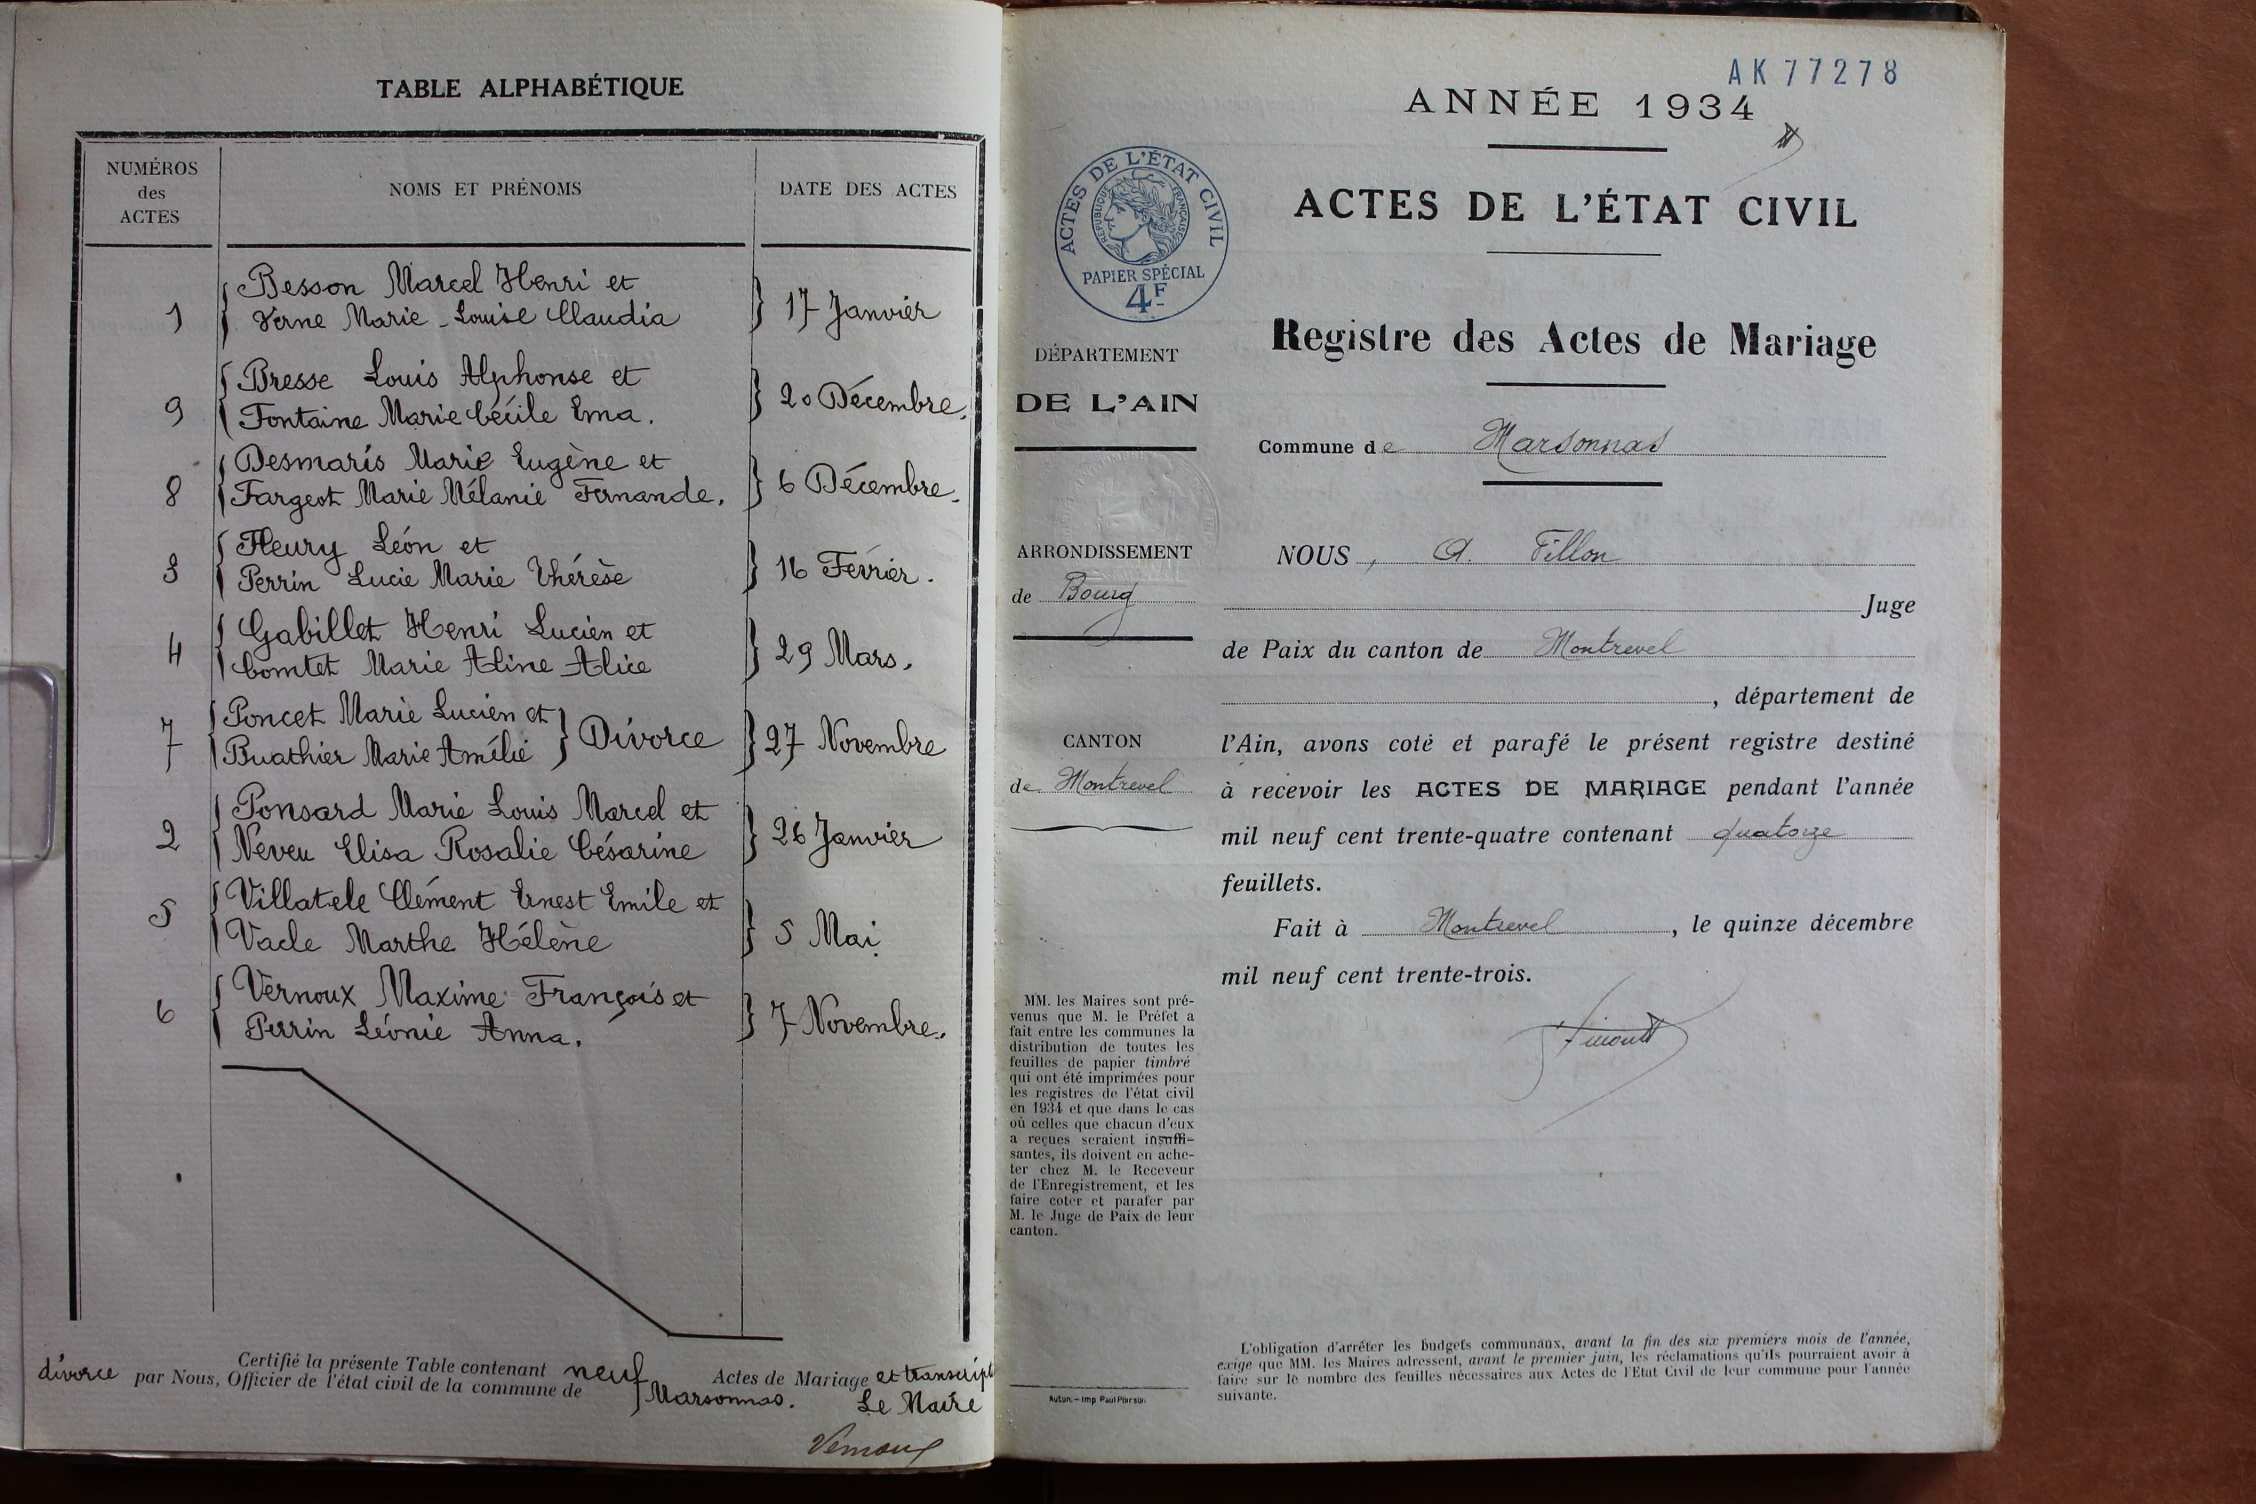 TABLE ALPHABÉTIQUE
NUMÉROS
des
ACTES
NOMS ET PRÉNOMS
DATE DES ACTES
Besson Marcel Henri et
1 Verne Marie-Louise Claudia 17 Janvier
Bresse Louis Alphonse et
9 Fontaine Marie Cécile Ema. 20 Décembre.
Desmaris Marie Eugène et
8 Fargeot Marie Mélanie Fernande. 6 Décembre.
Fleury Léon et
3 Perrin Lucie Marie Thérèse 16 Février.
Gabillet Henri Lucien et
4 Comtet Marie Aline Alice 29 Mars.
Poncet Marie Lucien et
7 Buathier Marie Amélie Divorce 27 Novembre
Ponsard Marie Louis Marcel et
2 Neveu Elisa Rosalie Césarine 26 Janvier
Villatele Clément Ernest Emile et
5 Vacle Marthe Hélène 5 Mai
Vernoux Maxime François et
6 Perrin Léonie Anna. 7 Novembre.
Certifié la présente Table contenant neuf Actes de Mariage et transcript
divorce par Nous, Officier de l'état civil de la commune de Marsonnas.
Le Maire
Vernoux
AK 77278
ANNÉE 1934
ACTES DE L'ÉTAT CIVIL
RÉPUBLIQUE FRANÇAISE
PAPIER SPÉCIAL
4F
ACTES DE L'ÉTAT CIVIL
Registre des Actes de Mariage
DÉPARTEMENT
DE L'AIN
Commune de Marsonnas
ARRONDISSEMENT
de Bourg
CANTON
de Montrevel
NOUS, A. Fillon
Juge
de Paix du canton de Montrevel
, département de
l'Ain, avons coté et parafé le présent registre destiné
à recevoir les ACTES DE MARIAGE pendant l'année
mil neuf cent trente-quatre contenant quatorze
feuillets.
Fait à Montrevel, le quinze décembre
mil neuf cent trente-trois.
MM. les Maires sont pré-
venus que M. le Préfet a
fait entre les communes la
distribution de toutes les
feuilles de papier timbré
qui ont été imprimées pour
les registres de l'état civil
en 1934 et que dans le cas
où celles que chacun d'eux
a reçues seraient insuffi-
santes, ils doivent en ache-
ter chez M. le Receveur
de l'Enregistrement, et les
faire coter et parafer par
M. le Juge de Paix de leur
canton.
Autun. — Imp Paul Pierson
L'obligation d'arrêter les budgets communaux, avant la fin des six premiers mois de l'année,
exige que MM. les Maires adressent, avant le premier juin, les réclamations qu'ils pourraient avoir à
faire sur le nombre des feuilles nécessaires aux Actes de l'Etat Civil de leur commune pour l'année
suivante.